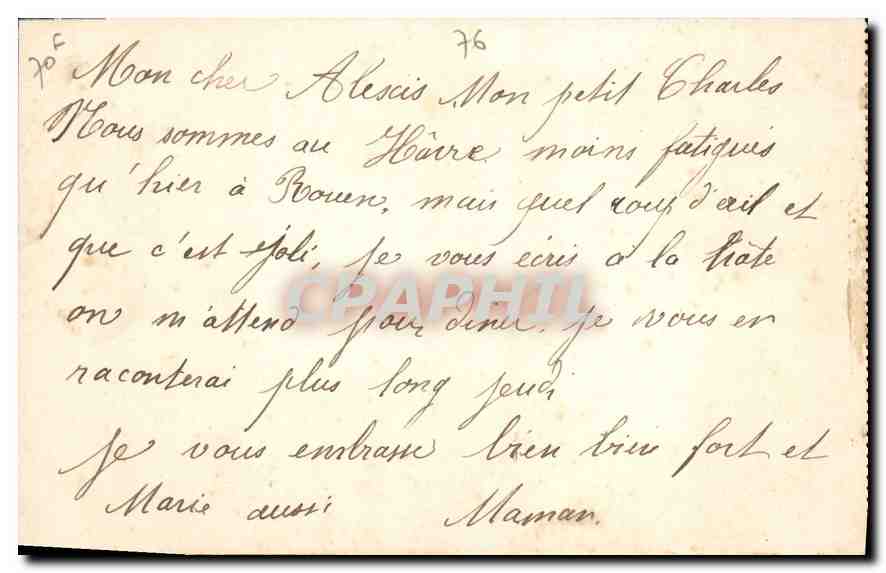 70F
76
Mon cher Alescis Mon petit Charles
Nous sommes au Hâvre moins fatigués
qu'hier à Rouen, mais quel coup d'œil et
que c'est joli, je vous écris a la hâte
on m'attend pour diner, je vous en
raconterai plus long jeudi
je vous embrasse bien bien fort et
Marie aussi Maman.
CPAPHIL